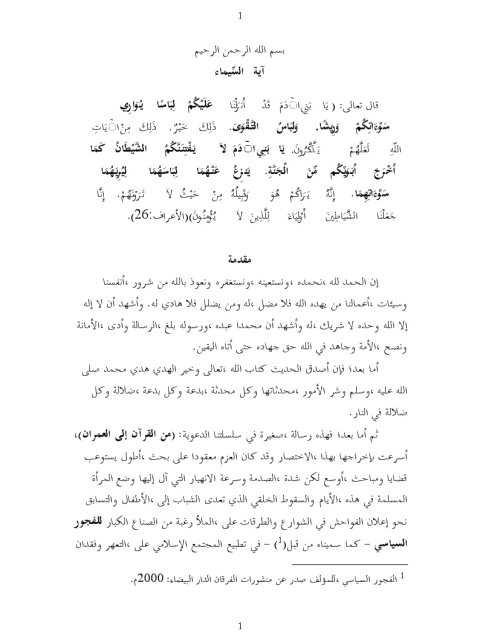 1
بسم الله الرحمن الرحيم
آية السِّيماء
قال تعالى: ( يَا بَنِي آدَمَ قَدْ أَنزَلْنَا عَلَيْكُمْ لِبَاسًا يُوَارِي
سَوْءَاتِكُمْ وَرِيشًا. وَلِبَاسُ التَّقْوَىَ. ذَلِكَ خَيْرٌ. ذَلِكَ مِنْ آيَاتِ
اللّهِ لَعَلَّهُمْ يَذَّكَّرُونَ. يَا بَنِي آدَمَ لاَ يَفْتِنَنَّكُمُ الشَّيْطَانُ كَمَا
أَخْرَجَ أَبَوَيْكُم مِّنَ الْجَنَّةِ. يَنزِعُ عَنْهُمَا لِبَاسَهُمَا لِيُرِيَهُمَا
سَوْءَاتِهِمَا. إِنَّهُ يَرَاكُمْ هُوَ وَقَبِيلُهُ مِنْ حَيْثُ لاَ تَرَوْنَهُمْ. إِنَّا
جَعَلْنَا الشَّيَاطِينَ أَوْلِيَاءَ لِلَّذِينَ لاَ يُؤْمِنُونَ)(الأعراف:26).
مقدمة
إن الحمد لله ،نحمده ،ونستعينه ،ونستغفره ونعوذ بالله من شرور ،أنفسنا
وسيئات ،أعمالنا من يهده الله فلا مضل ،له ومن يضلل فلا هادي له. وأشهد أن لا إله
إلا الله وحده لا شريك ،له وأشهد أن محمدا عبده ،ورسوله بلغ ،الرسالة وأدى ،الأمانة
ونصح ،الأمة وجاهد في الله حق جهاده حتى أتاه اليقين.
أما بعد؛ فإن أصدق الحديث كتاب الله ،تعالى وخير الهدي هدي محمد صلى
الله عليه ،وسلم وشر الأمور ،محدثاتها وكل محدثة ،بدعة وكل بدعة ،ضلالة وكل
ضلالة في النار.
ثم أما بعد؛ فهذه رسالة ،صغيرة في سلسلتنا الدعوية: (من القرآن إلى العمران)،
أسرعت بإخراجها بهذا ،الاختصار وقد كان العزم معقودا على بحث ،أطول يستوعب
قضايا ومباحث ،أوسع لكن شدة ،الصدمة وسرعة الانهيار التي آل إليها وضع المرأة
المسلمة في هذه ،الأيام والسقوط الخلقي الذي تعدى الشباب إلى ،الأطفال والتسابق
نحو إعلان الفواحش في الشوارع والطرقات على ،الملأ رغبة من الصناع الكبار للفجور
السياسي – كما سميناه من قبل(1) – في تطبيع المجتمع الإسلامي على ،التعهر وفقدان
1 الفجور السياسي ،للمؤلف صدر عن منشورات الفرقان الدار البيضاء: 2000م.
1